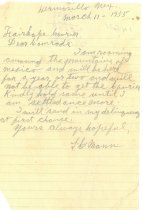 March 11 - 1935
Dear Comrade
I am roaming
among the mountains of
Mexico and will be here
for a year or two and will
not be able to get the
Kindly hold same until I
am settled once more.
I will send in my
at first chance.
Yours always hopeful,
Mann